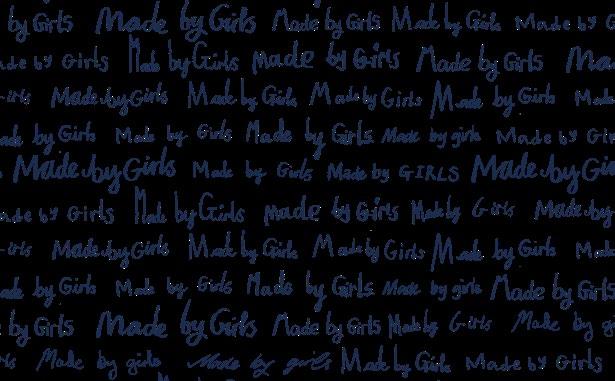 by Girls Made by Girls Made by Girls Made by Girls Made by G
ade by Girls Made by Girls Made by Girls Made by Girls Ma
irls Made by Girls Made by Girls Made by Girls Made by Girls Made
ade by Girls Made by Girls Made by Girls Made by girls Made by Girls
Made by Girls Made by Girls Made by GIRLS Made by Gi
ade by Girls Made by Girls Made by Girls Made by Girls Made by
irls Made by Girls Made by Girls Made by Girls Made by Girls Made
ade by Girls Made by Girls Made by Girls Made by girls Made by Girls
by Girls Made by Girls Made by Girls Made by Girls Made by gi
ls Made by girls Made by girls Made by Girls Made by Girls